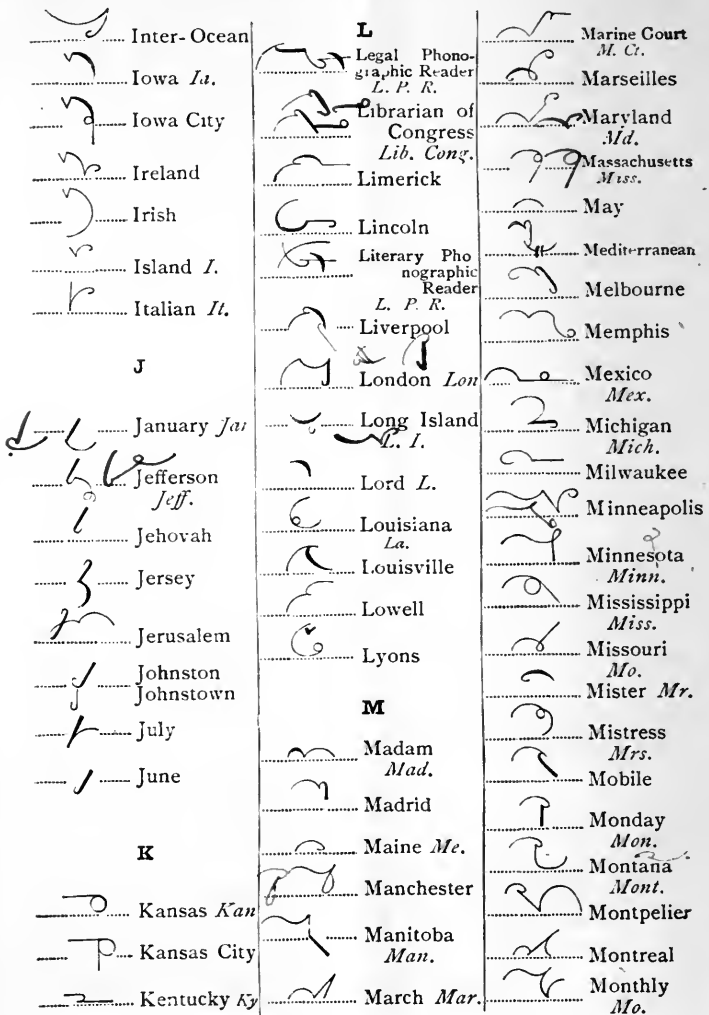 Inter-Ocean
Iowa Ia.
Iowa City
Ireland
Irish
Island I.
Italian It.
J
January Jai
Jefferson
Jeff.
Jehovah
Jersey
Jerusalem
Johnston
Johnstown
July
June
K
Kansas Kan
Kansas City
Kentucky Ky
L
Legal Phono-
graphic Reader
L. P. R.
Librarian of
Congress
Lib. Cong.
Limerick
Lincoln
Literary Pho
nographic
Reader
L. P. R.
Liverpool
London Lon
Long Island
L. I.
Lord L.
Louisiana
La.
Louisville
Lowell
Lyons
M
Madam
Mad.
Madrid
Maine Me.
Manchester
Manitoba
Man.
March Mar.
Marine Court
M. Ct.
Marseilles
Maryland
Md.
Massachusetts
Miss.
May
Mediterranean
Melbourne
Memphis
Mexico
Mex.
Michigan
Mich.
Milwaukee
Minneapolis
Minnesota
Minn.
Mississippi
Miss.
Missouri
Mo.
Mister Mr.
Mistress
Mrs.
Mobile
Monday
Mon.
Montana
Mont.
Montpelier
Montreal
Monthly
Mo.